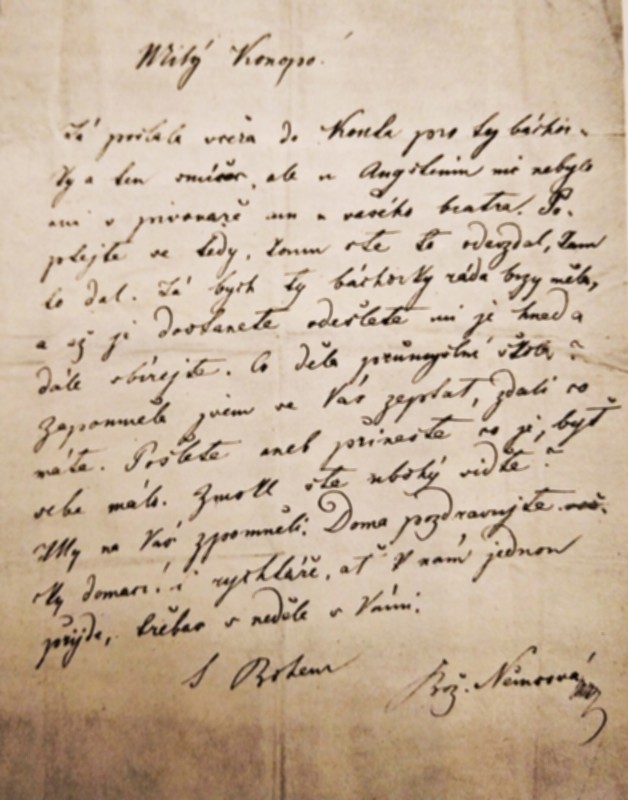 Milý Konopo!
Já poslala včera do Kouta pro ty báchor-
ky a ten , ale u nic nebylo
ani v ani u vašého bratra. Po-
ptejte se tedy, komu ste to odevzdal, kam
to dal. Já bych ty báchorky ráda brzy měla,
a až je dostanete odešlete mi je hned a
dále sbírejte. Co dělá průmyslní škola?
Zapomněla jsem se Vás zeptat, zdali co
máte. Pošlete aneb přineste co je, byť
sebe málo. Zmokl ste ubohý viďte?
My na Vás zpomněli. Doma pozdravujte
ky domácí i rychtáře, ať k nám jednou
přijde, třebas v neděle s Vámi.
S Bohem
Bož. Němcová